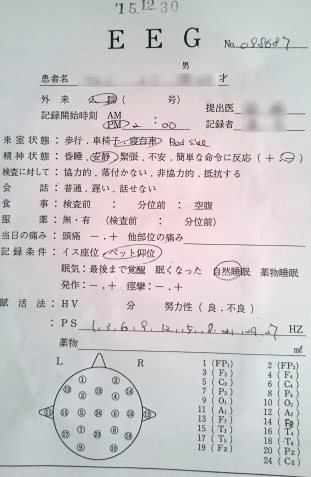 '15.12.30
EEG No. 088687
男
患者名 才
外来 入院 ( 号) 提出医
記録開始時刻 AM :
PM 2 00 記録者
来室状態: 歩行.車椅子.寝台車 Bed side
精神状態: 昏睡.安静.緊張.不安.簡単な命令に反応 (+.-)
検査に対して: 協力的.落付かない.非協力的.抵抗する
会話: 普通.遅い.話せない
食事: 検査前 : 分位前 : 空腹
服薬: 無・有 (検査前 : 分位前)
当日の痛み: 頭痛 -.+ 他部位の痛み
記録条件: イス座位.ベット仰位
眠気: 最後まで覚醒 眠くなった 自然睡眠 薬物睡眠
発作: -.+ 痙攣: -.+
賦活法: HV 分 努力性 (良.不良)
: PS 1, 3, 6, 9, 12, 15, 18, 21, 24, 27 HZ
薬物 ml
L R
1 (FP1) 2 (FP2)
3 (F3) 4 (F4)
5 (C3) 6 (C4)
7 (P3) 8 (P4)
9 (O1) 10 (O2)
11 (A1) 12 (A2)
13 (F7) 14 (F8)
15 (T3) 16 (T4)
17 (T5) 18 (T6)
19 (Fz) 20 (Pz)
24 (Cz)